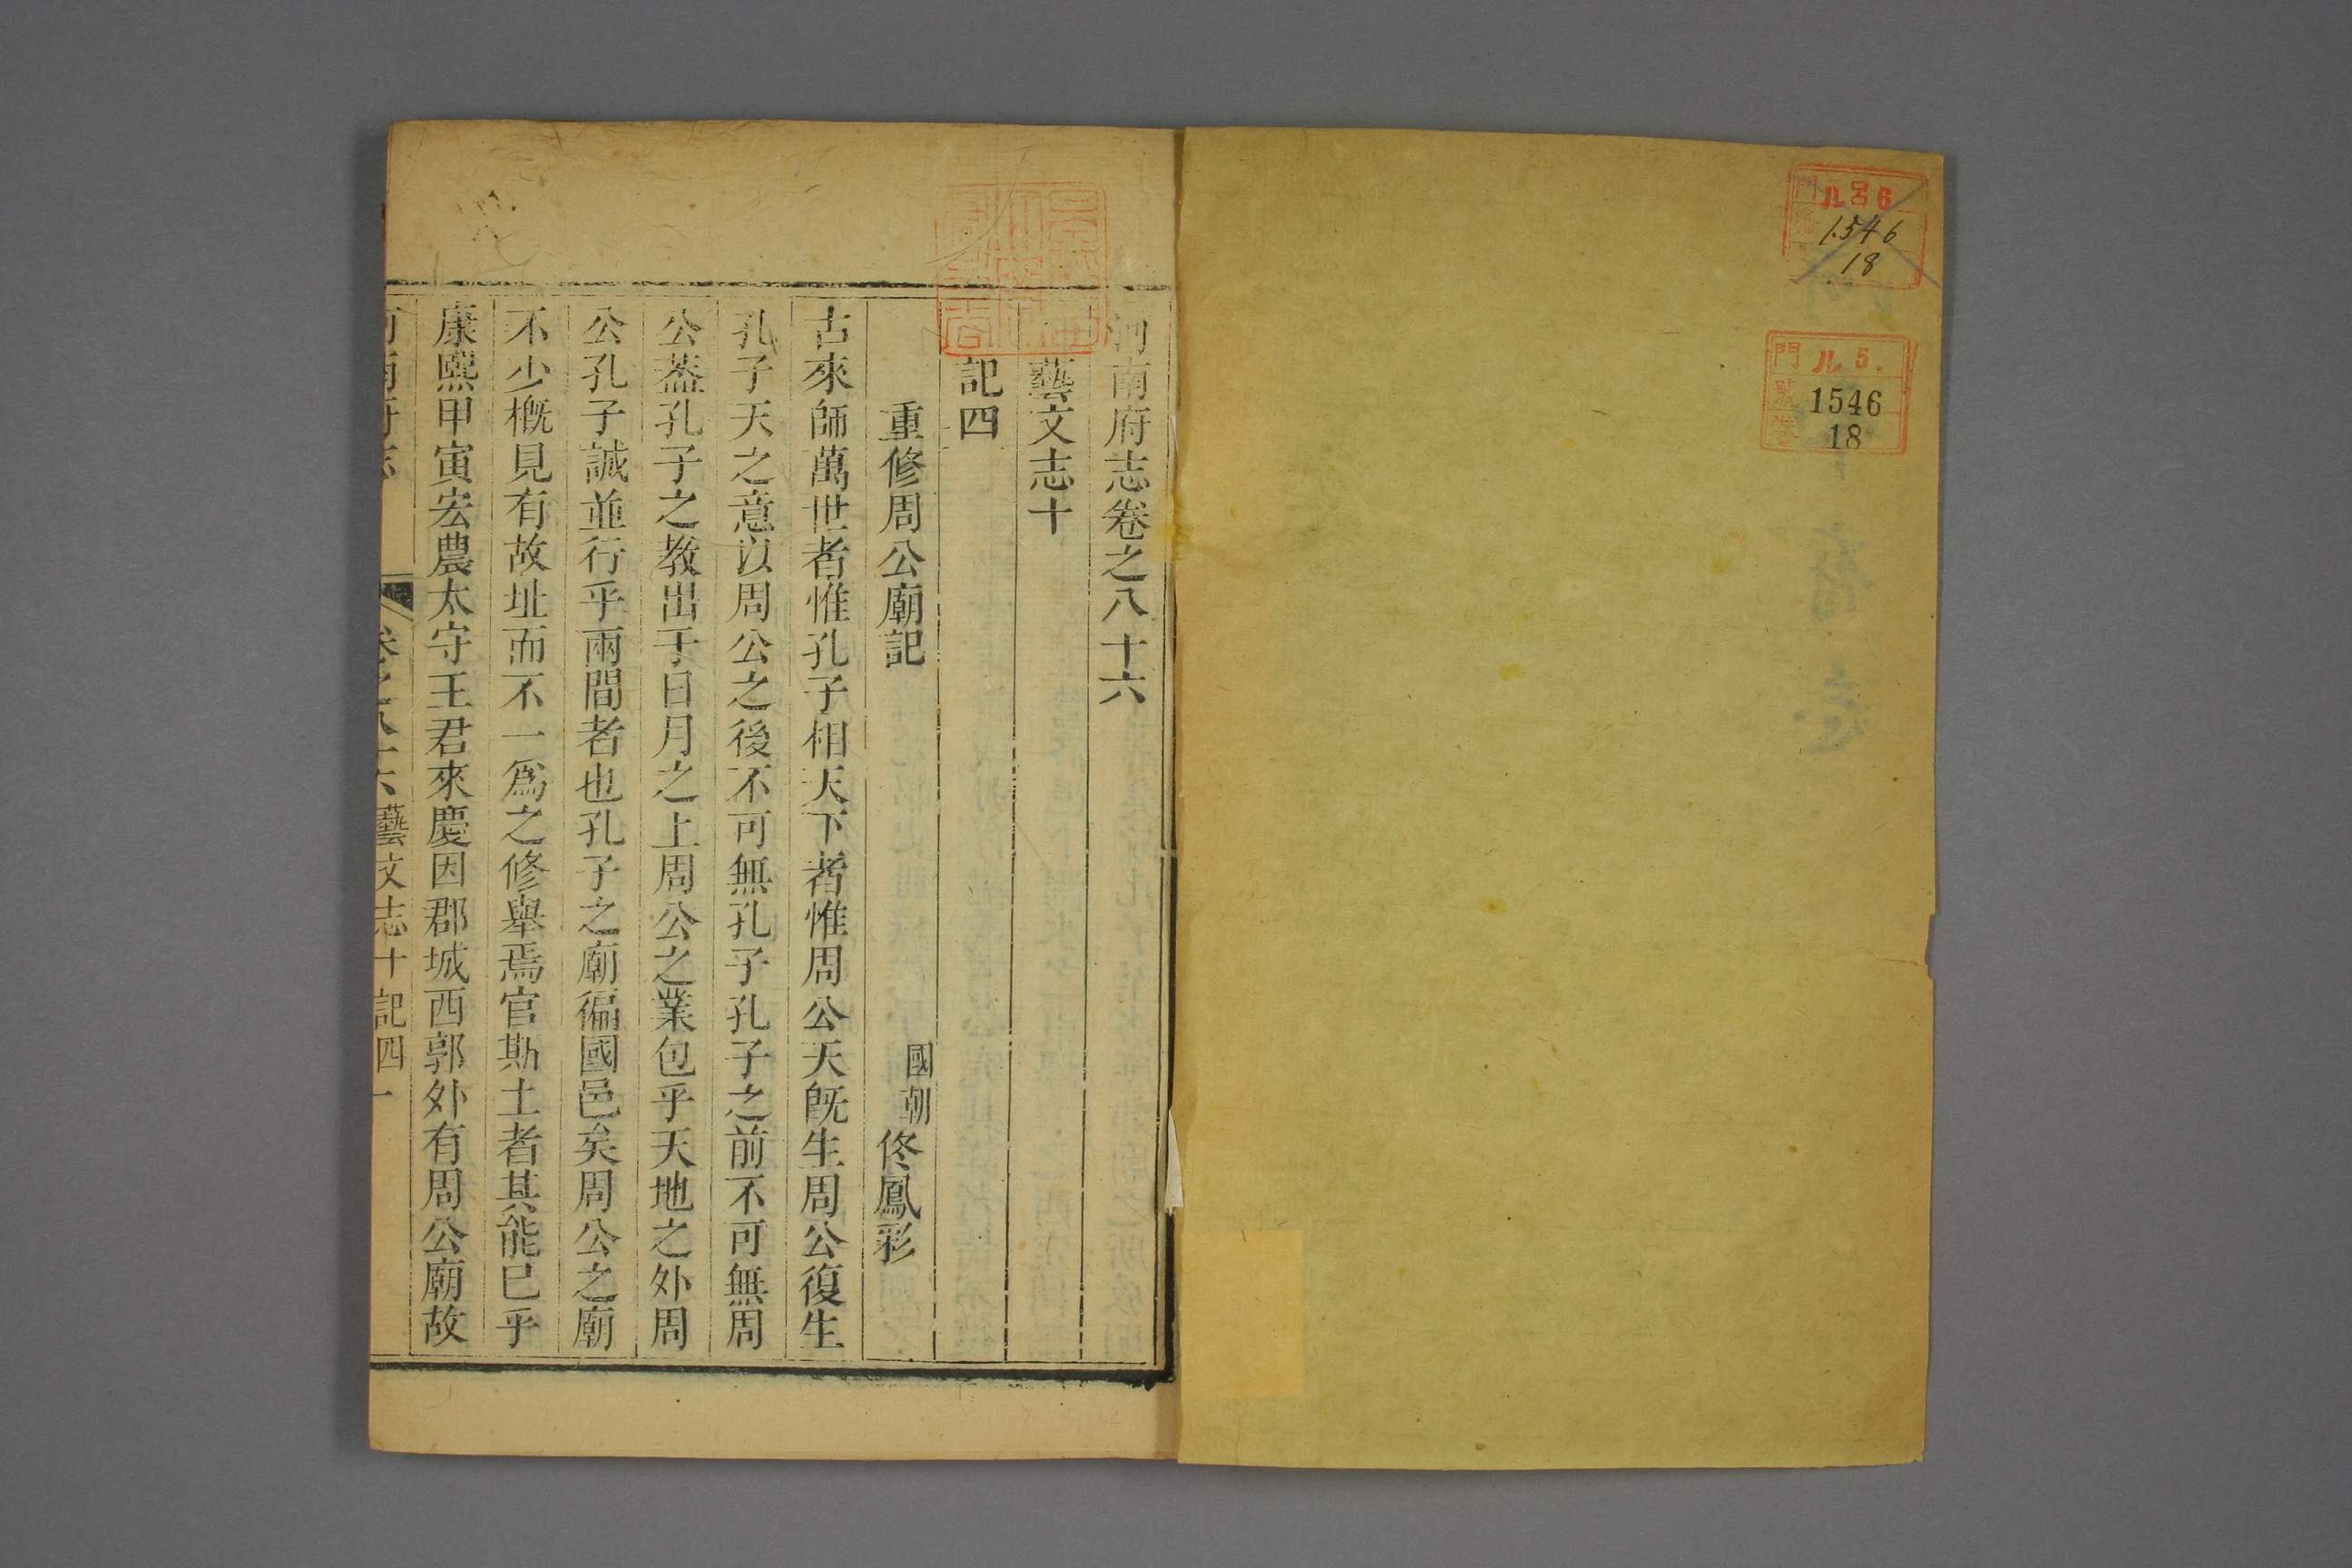 儿呂6
1546
18
門 儿 5.
號 1546
卷 18
河南府志卷之八十六
藝文志十
記四
重修周公廟記
國朝佟鳳彩
古來師萬世者惟孔子相天下者惟周公天旣生周公復生
孔子天之意以周公之後不可無孔子孔子之前不可無周
公葢孔子之教出于日月之上周公之業包乎天地之外周
公孔子誠並行乎兩間者也孔子之廟徧國邑矣周公之廟
不少槪見有故址而不一爲之修舉焉官斯土者其能已乎
康熙甲寅宏農太守王君來慶因郡城西郭外有周公廟故
河南府志
卷之八十六藝文志十記四
一